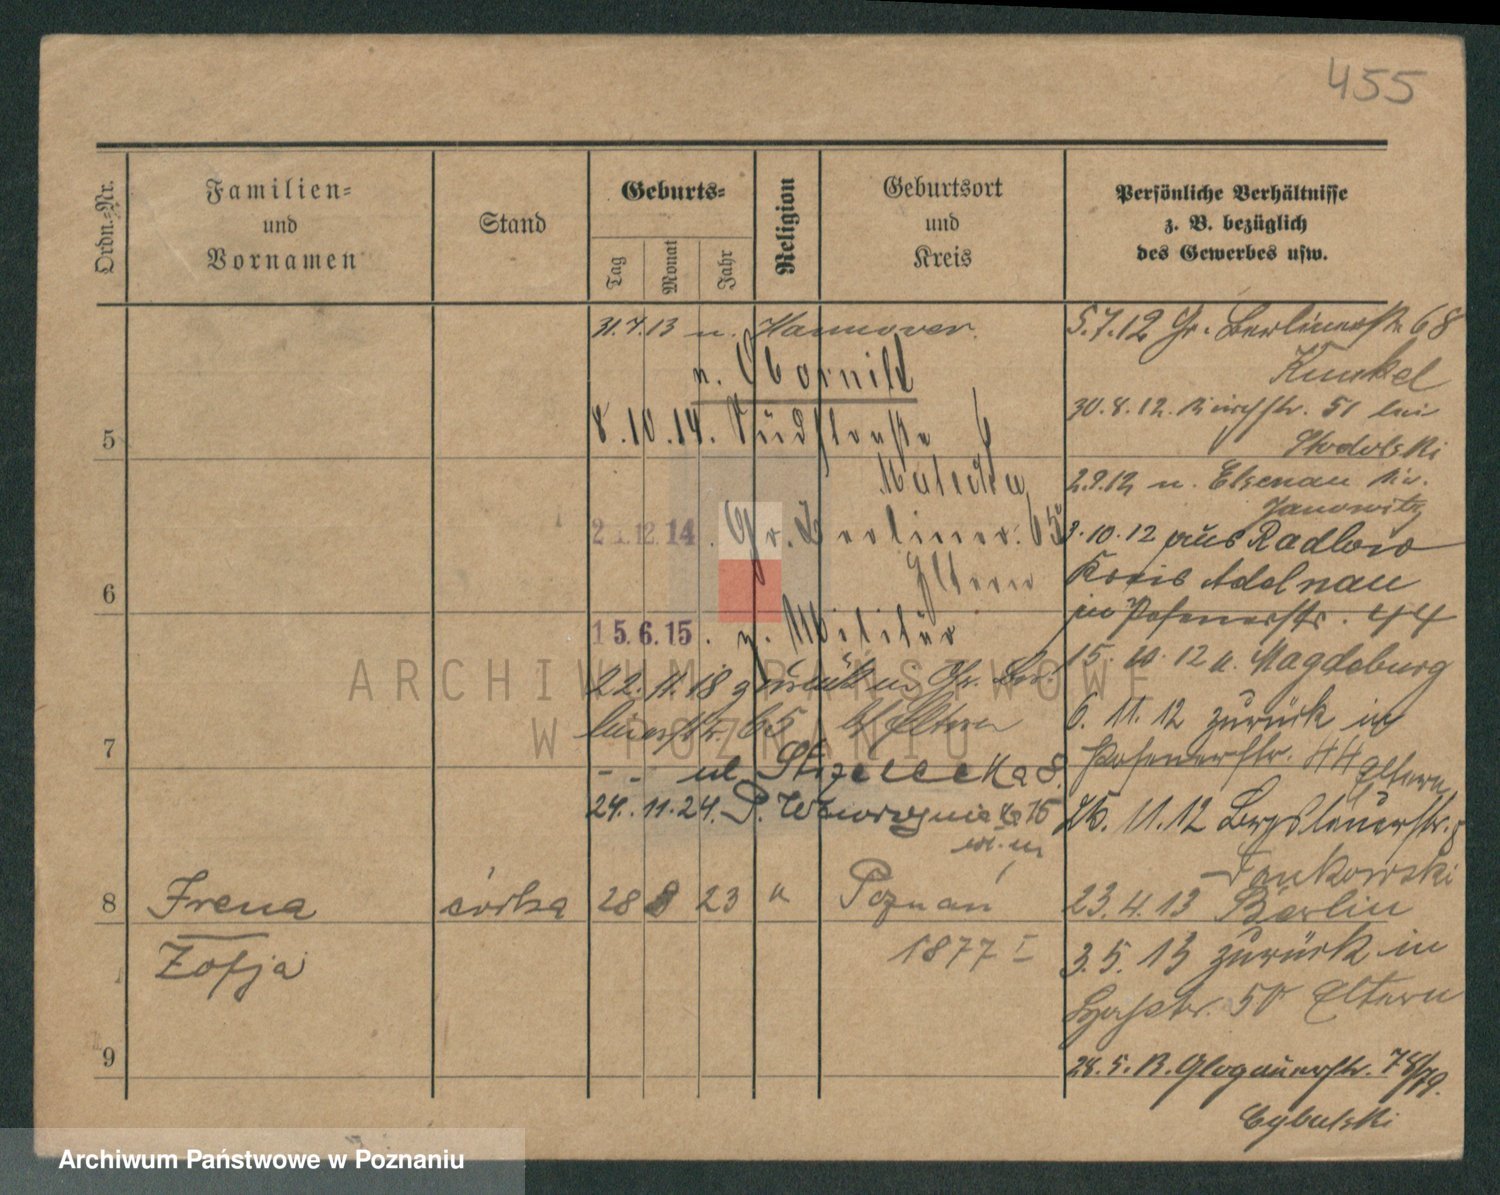 455
Ordn.-Nr.
Familien-
und
Vornamen
Stand
Geburts-
Tag
Monat
Jahr
Religion
Geburtsort
und
Kreis
Persönliche Verhältnisse
z. B. bezüglich
des Gewerbes usw.
31.7.13 n. Hannover.
n. Obornik
8.10.14.
12.14. Gr. Berliner. 65
Eltern
15.6.15. z. Militär
22.11.18 zurück in Gr. Ber-
linerstr. 65 Eltern
ul. Strzelecka 8.
24.11.24.
5
6
7
8 Irena córka 28 8 23 k Poznań
Zofja 1877 I
9
5.7.12 Gr. Berlinerstr. 68
Kunkel
30.8.12. 51 bei
Stodolski
2.9.12 n. Elsenau
Janowitz
3.10.12 aus Radlow
Kreis Adelnau
in Posenerstr. 44
15.10.12 n. Magdeburg
6.11.12 zurück in
Posenerstr. 44 Eltern
11.12
Jankowski
23.4.13 Berlin
3.5.13 zurück in
50 Eltern
28.5.13. Glogauerstr. 78/79.
Cybulski
ARCHIWUM PAŃSTWOWE
W POZNANIU
Archiwum Państwowe w Poznaniu